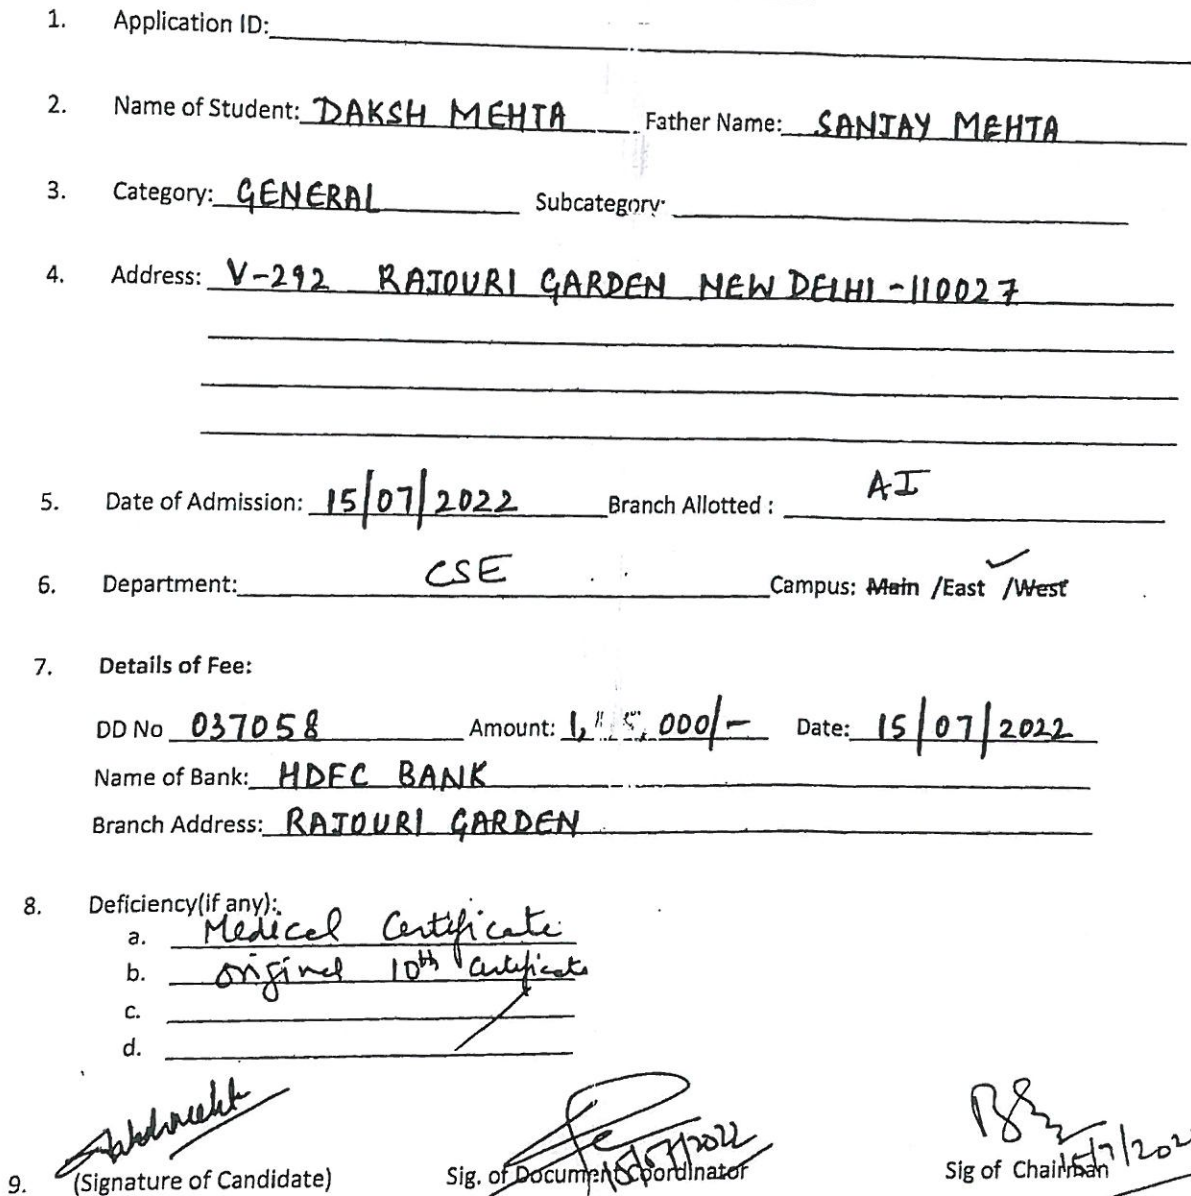 1. Application ID:
2. Name of Student: DAKSH MEHTA Father Name: SANJAY MEHTA
3. Category: GENERAL Subcategory:
4. Address: V-292 RAJOURI GARDEN NEW DELHI-110027
5. Date of Admission: 15/07/2022 Branch Allotted : AI
6. Department: CSE Campus: Main /East /West
7. Details of Fee:
DD No 037058 Amount: 1, 000/- Date: 15/07/2022
Name of Bank: HDFC BANK
Branch Address: RAJOURI GARDEN
8. Deficiency(if any):
a. Medical Certificate
b. original 10th Certificate
c.
d.
15/07/2022 15/7/202
9. (Signature of Candidate) Sig. of Document Coordinator Sig of Chairman